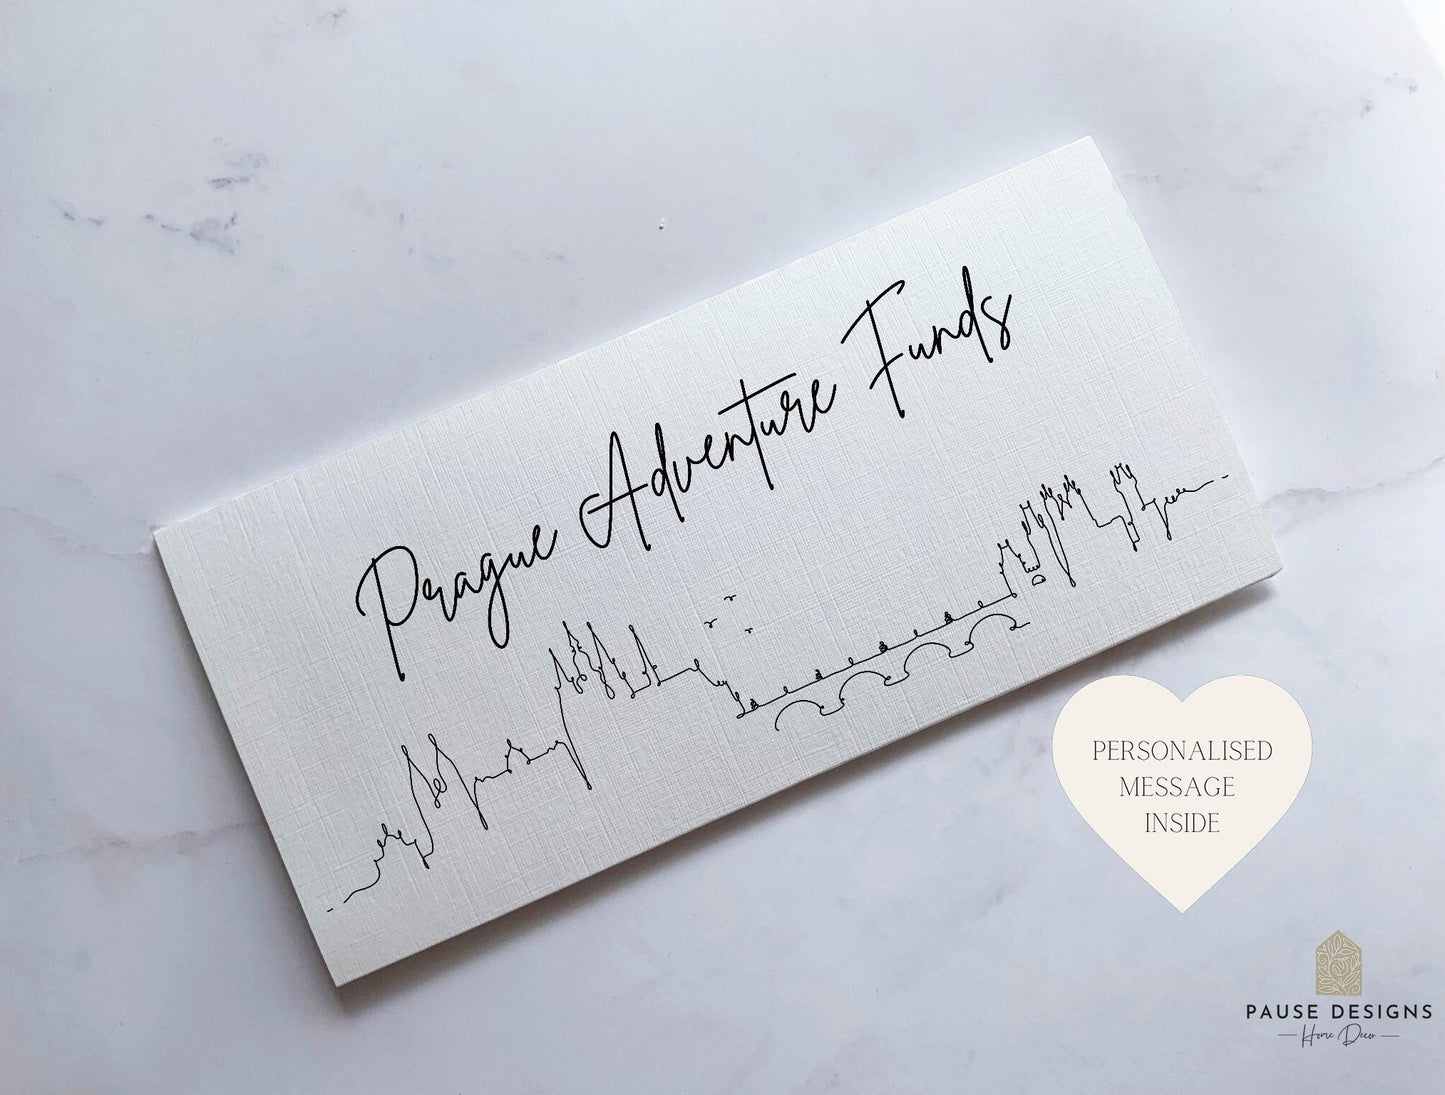 Prague Adventure Funds
PERSONALISED
MESSAGE
INSIDE
PAUSE DESIGNS
Home Decor